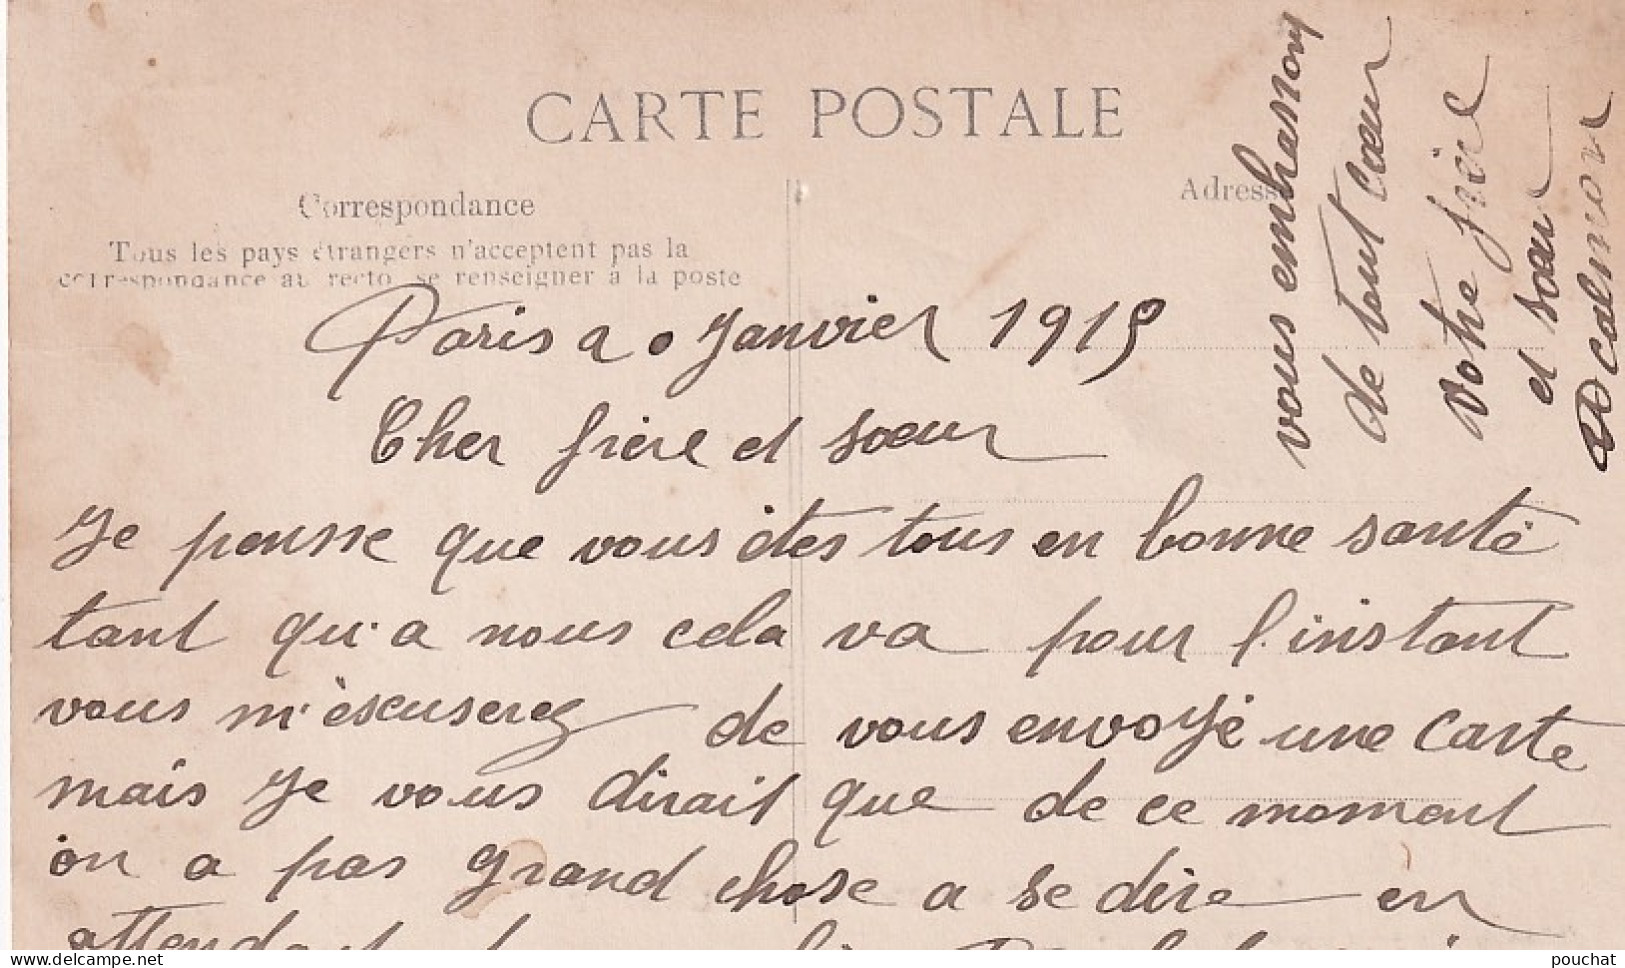 CARTE POSTALE
Correspondance
Tous les pays étrangers n'acceptent pas la
correspondance au recto, se renseigner à la poste
Adresse
Paris 20 Janvier 1915
Cher frère et sœur
Je pensse que vous êtes tous en bonne santé
tant qu'a nous cela va pour l'instant
vous m'éscuserez de vous envoyé une carte
mais Je vous dirait que de ce moment
on a pas grand chose a se dire en
attendant
vous embrassons
de tout cœur
Votre frère
et sœur
delcampe.net
pouchat